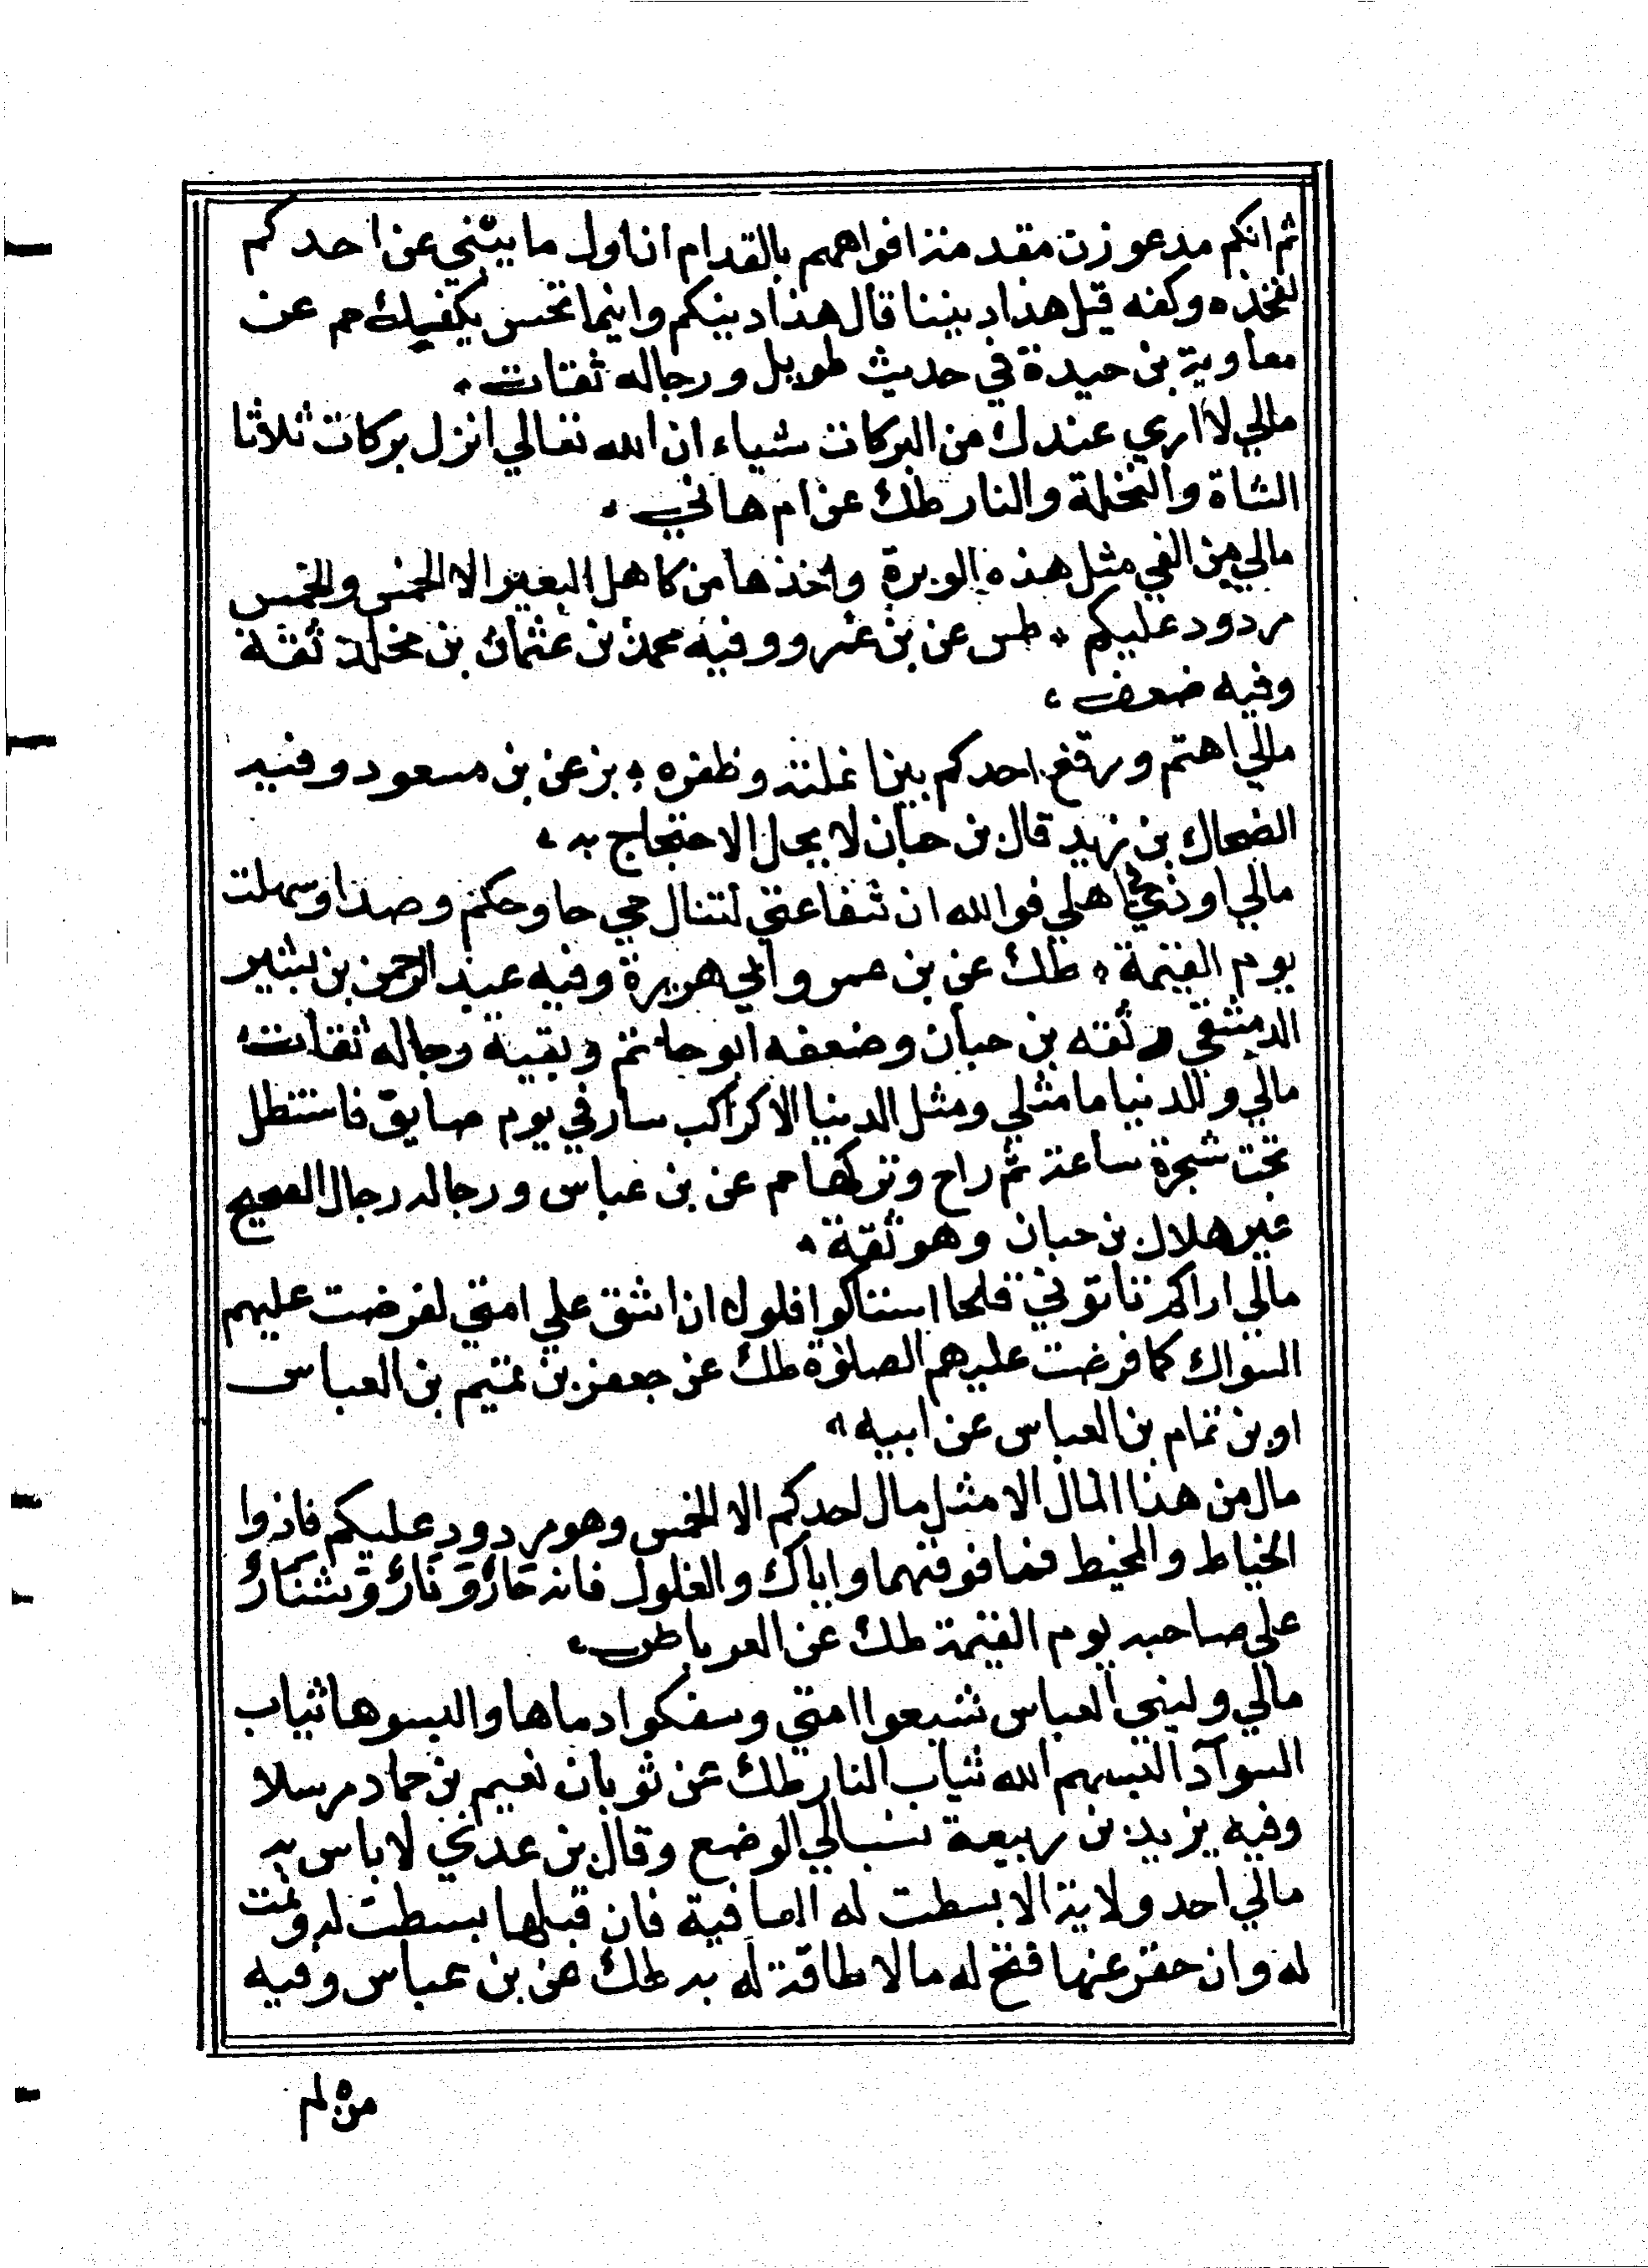 ثم انكم مدعوزن مقد منذ افواههم بالقدام ان اول ما يبيّني عن احدكم
لفخذه وكفه قيل هذا ديننا قال هذا دينكم واينما تحسن يكفيك حم عن
معاوية بن حيدة في حديث طويل ورجاله ثقات
مالي لا اري عندك من البركات شياء ان الله تعالي انزل بركات ثلاثا
الشاة والنخلة والنار طك عن ام هاني
مالي من الفي مثل هذه الوبرة واخذها من كاهل البعير الا الخمس والخمس
مردود عليكم طس عن بن عمرو وفيه محمد بن عثمان بن مخلد ثقة
وفيه ضعف
مالي اهتم ورفغ احدكم بين انملته وظفره بز عن بن مسعود وفيه
الضحاك بن زيد قال بن حبان لا يحل الاحتجاج به
مالي اوذي في اهلي فوالله ان شفاعتي لتنال حي حا وحكم وصدا وسهلت
يوم القيمة طك عن بن عمر وابي هريرة وفيه عبد الرحمن بن بشير
الدمشقي وثقه بن حبان وضعفه ابو حاتم وبقية رجاله ثقات
مالي وللدنيا ما مثلي ومثل الدنيا الا كراكب سار في يوم صايق فاستظل
تحت شجرة ساعة ثم راح وتركها حم عن بن عباس ورجاله رجال الصحيح
غير هلال بن حبان وهو ثقة
مالي اراكم تاتوني قلحا استاكوا فلولا ان اشق علي امتي لفرضت عليهم
السواك كما فرضت عليهم الصلوة طك عن جعفر بن تميم بن العباس
او بن تمام بن العباس عن ابيه
مال من هذا المال الا مثل مال احدكم الا الخمس وهو مردود عليكم فادوا
الخياط والمخيط فما فوقهما واياك والغلول فانه عار ونار وشنار
علي صاحبه يوم القيمة طك عن العرباض
مالي ولبني العباس شيعوا امتي وسفكوا دماها والبسوها ثياب
السواد البسهم الله ثياب النار طك عن ثوبان نعيم بن حماد مرسلا
وفيه يزيد بن ربيعة نسب الي الوضع وقال بن عدي لا باس به
مالي احد ولاية الا بسطت له العافية فان قبلها بسطت له وتمت
له وان حفز عنها فتح له مالا طاقة له به طك عن بن عباس وفيه
من لم